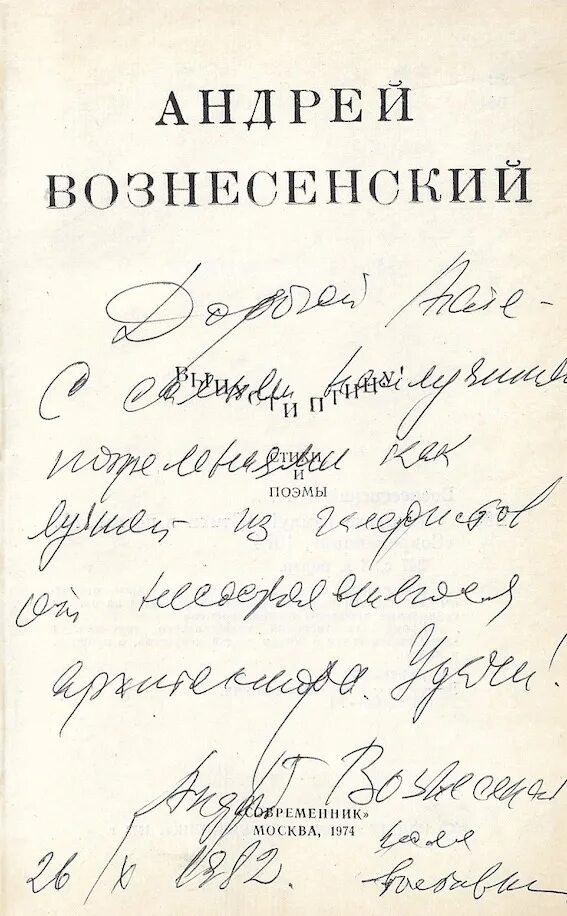 АНДРЕЙ
ВОЗНЕСЕНСКИЙ
Дорогой Нате -
С самыми наилучшими
ВЫПУСТИ ПТИЦУ!
пожеланиями как
СТИХИ
И
ПОЭМЫ
лучшей из
от несостоявшегося
архитектора. Удачи!
Андрей Вознесенский
«СОВРЕМЕННИК»
МОСКВА, 1974
после
26/X 1982.